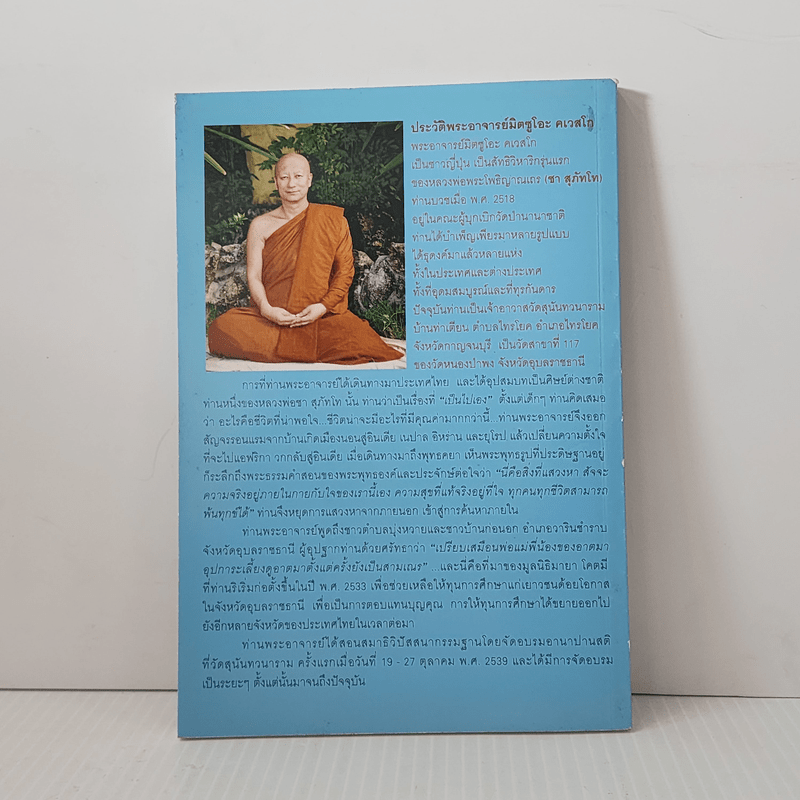 ประวัติพระอาจารย์มิตซูโอะ คเวสโก
พระอาจารย์มิตซูโอะ คเวสโก
เป็นชาวญี่ปุ่น เป็นสัทธิวิหาริกรุ่นแรก
ของหลวงพ่อพระโพธิญาณเถร (ชา สุภัทโท)
ท่านบวชเมื่อ พ.ศ. 2518
อยู่ในคณะผู้บุกเบิกวัดป่านานาชาติ
ท่านได้บำเพ็ญเพียรมาหลายรูปแบบ
ได้ธุดงค์มาแล้วหลายแห่ง
ทั้งในประเทศและต่างประเทศ
ทั้งที่อุดมสมบูรณ์และที่ทุรกันดาร
ปัจจุบันท่านเป็นเจ้าอาวาสวัดสุนันทวนาราม
บ้านท่าเตียน ตำบลไทรโยค อำเภอไทรโยค
จังหวัดกาญจนบุรี เป็นวัดสาขาที่ 117
ของวัดหนองป่าพง จังหวัดอุบลราชธานี
การที่ท่านพระอาจารย์ได้เดินทางมาประเทศไทย และได้อุปสมบทเป็นศิษย์ต่างชาติ
ท่านหนึ่งของหลวงพ่อชา สุภัทโท นั้น ท่านว่าเป็นเรื่องที่ “เป็นไปเอง” ตั้งแต่เด็กๆ ท่านคิดเสมอ
ว่า อะไรคือชีวิตที่น่าพอใจ...ชีวิตน่าจะมีอะไรที่มีคุณค่ามากกว่านี้...ท่านพระอาจารย์จึงออก
สัญจรรอนแรมจากบ้านเกิดเมืองนอนสู่อินเดีย เนปาล อิหร่าน และยุโรป แล้วเปลี่ยนความตั้งใจ
ที่จะไปแอฟริกา วกกลับสู่อินเดีย เมื่อเดินทางมาถึงพุทธคยา เห็นพระพุทธรูปที่ประดิษฐานอยู่
ก็ระลึกถึงพระธรรมคำสอนของพระพุทธองค์และประจักษ์ต่อใจว่า “นี่คือสิ่งที่แสวงหา สัจจะ
ความจริงอยู่ภายในกายกับใจของเรานี้เอง ความสุขที่แท้จริงอยู่ที่ใจ ทุกคนทุกชีวิตสามารถ
พ้นทุกข์ได้” ท่านจึงหยุดการแสวงหาจากภายนอก เข้าสู่การค้นหาภายใน
ท่านพระอาจารย์พูดถึงชาวตำบลบุ่งหวายและชาวบ้านก่อนอก อำเภอวารินชำราบ
จังหวัดอุบลราชธานี ผู้อุปฐากท่านด้วยศรัทธาว่า “เปรียบเสมือนพ่อแม่พี่น้องของอาตมา
อุปการะเลี้ยงดูอาตมาตั้งแต่ครั้งยังเป็นสามเณร” ...และนี่คือที่มาของมูลนิธิมายา โคตมี
ที่ท่านริเริ่มก่อตั้งขึ้นในปี พ.ศ. 2533 เพื่อช่วยเหลือให้ทุนการศึกษาแก่เยาวชนด้อยโอกาส
ในจังหวัดอุบลราชธานี เพื่อเป็นการตอบแทนบุญคุณ การให้ทุนการศึกษาได้ขยายออกไป
ยังอีกหลายจังหวัดของประเทศไทยในเวลาต่อมา
ท่านพระอาจารย์ได้สอนสมาธิวิปัสสนากรรมฐานโดยจัดอบรมอานาปานสติ
ที่วัดสุนันทวนาราม ครั้งแรกเมื่อวันที่ 19 - 27 ตุลาคม พ.ศ. 2539 และได้มีการจัดอบรม
เป็นระยะๆ ตั้งแต่นั้นมาจนถึงปัจจุบัน